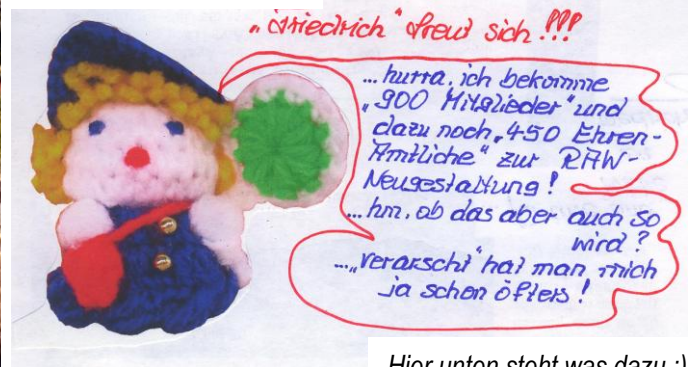 „Friedrich" freut sich !!!
... hurra, ich bekomme
„900 Mitglieder" und
dazu noch „450 Ehren-
Amtliche" zur RAW-
Neugestaltung !
... hm, ob das aber auch so
wird ?
... „verarscht" hat man mich
ja schon öfters !
Hier unten steht was dazu :)